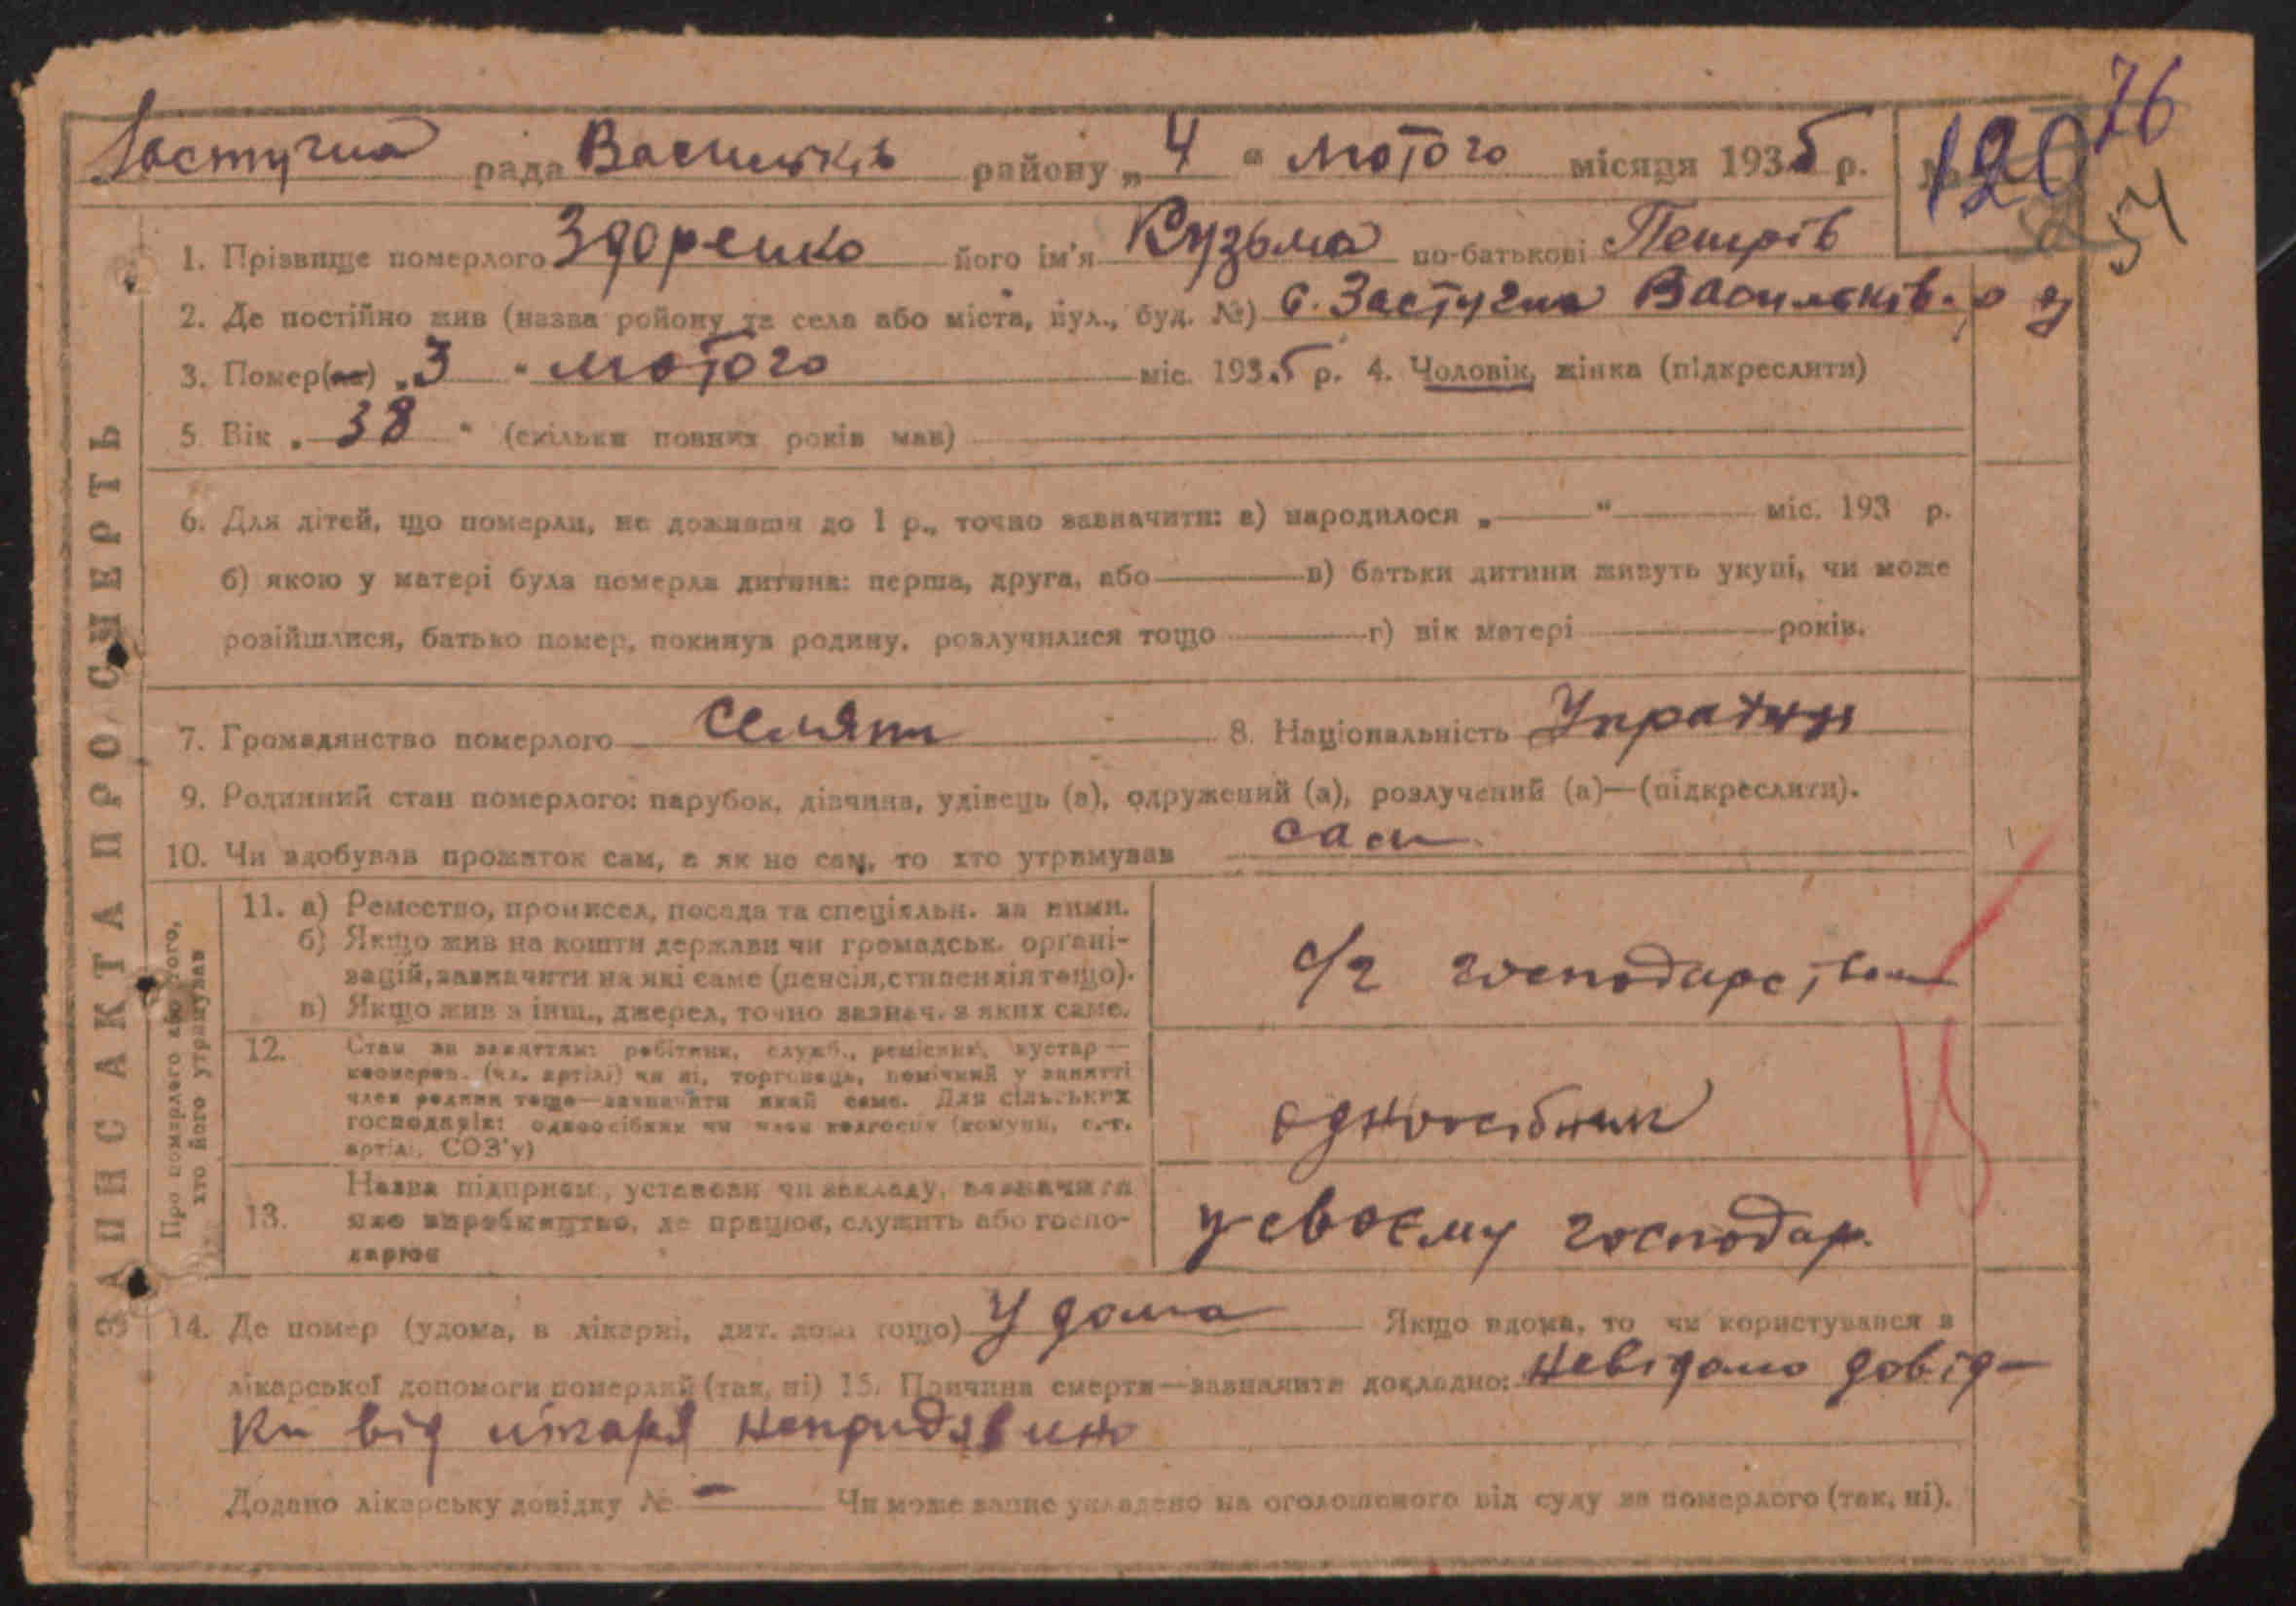 76
Застугна рада Васильків району „ 4 “ лютого місяця 1935 р. № 120
54
1. Прізвище померлого Здоренко його ім'я Кузьма по-батькові Петрів
2. Де постійно жив (назва ройону та села або міста, вул., буд. №) с. Застугна Васильків. р
3. Помер(ла) „3“ лютого міс. 1935 р. 4. Чоловік, жінка (підкреслити)
5. Вік „ 38 “ (скільки повних років мав)
6. Для дітей, що померли, не доживши до 1 р., точно зазначити: а) народилося „ “ міс. 193 р.
б) якою у матері була померла дитина: перша, друга, або в) батьки дитини живуть укупі, чи може
розійшлися, батько помер, покинув родину, розлучилися тощо г) вік матері років.
7. Громадянство померлого Селянн 8. Національність Українц
9. Родинний стан померлого: парубок, дівчина, удівець (а), одружений (а), розлучений (а)—(підкреслити).
10. Чи здобував прожиток сам, а як не сам, то хто утримував сам
Про померлого або того, хто його утримував
11. а) Ремество, промисел, посада та спеціяльн. за ними.
б) Якщо жив на кошти держави чи громадськ. органі-
зацій, зазначити на які саме (пенсія, стипендія тощо).
в) Якщо жив з інш., джерел, точно зазнач. з яких саме.
с/г господарством
12. Стан за заняттям: робітник, служб., ремісник, кустар—
коопером. (чл. артілі) чи ні, торговець, помічний у занятті
член родини тощо—зазначити який саме. Для сільських
господарів: одноосібник чи член колгоспу (комуни, с.-г.
артілі, СОЗ'у)
одноосібник
13. Назва підприєм., установи чи закладу, зазначити
яке виробництво, де працює, служить або госпо-
дарює
у своєму господар.
14. Де помер (удома, в лікарні, дит. домі тощо) У дома Якщо вдома, то чи користувався з
лікарської допомоги померлий (так, ні) 15. Причина смерти—зазначити докладно: невідомо довід-
ки від лікаря
Додано лікарську довідку № — Чи може запис укладено на оголошеного від суду за померлого (так, ні).
ЗАПИС АКТА ПРО СМЕРТЬ